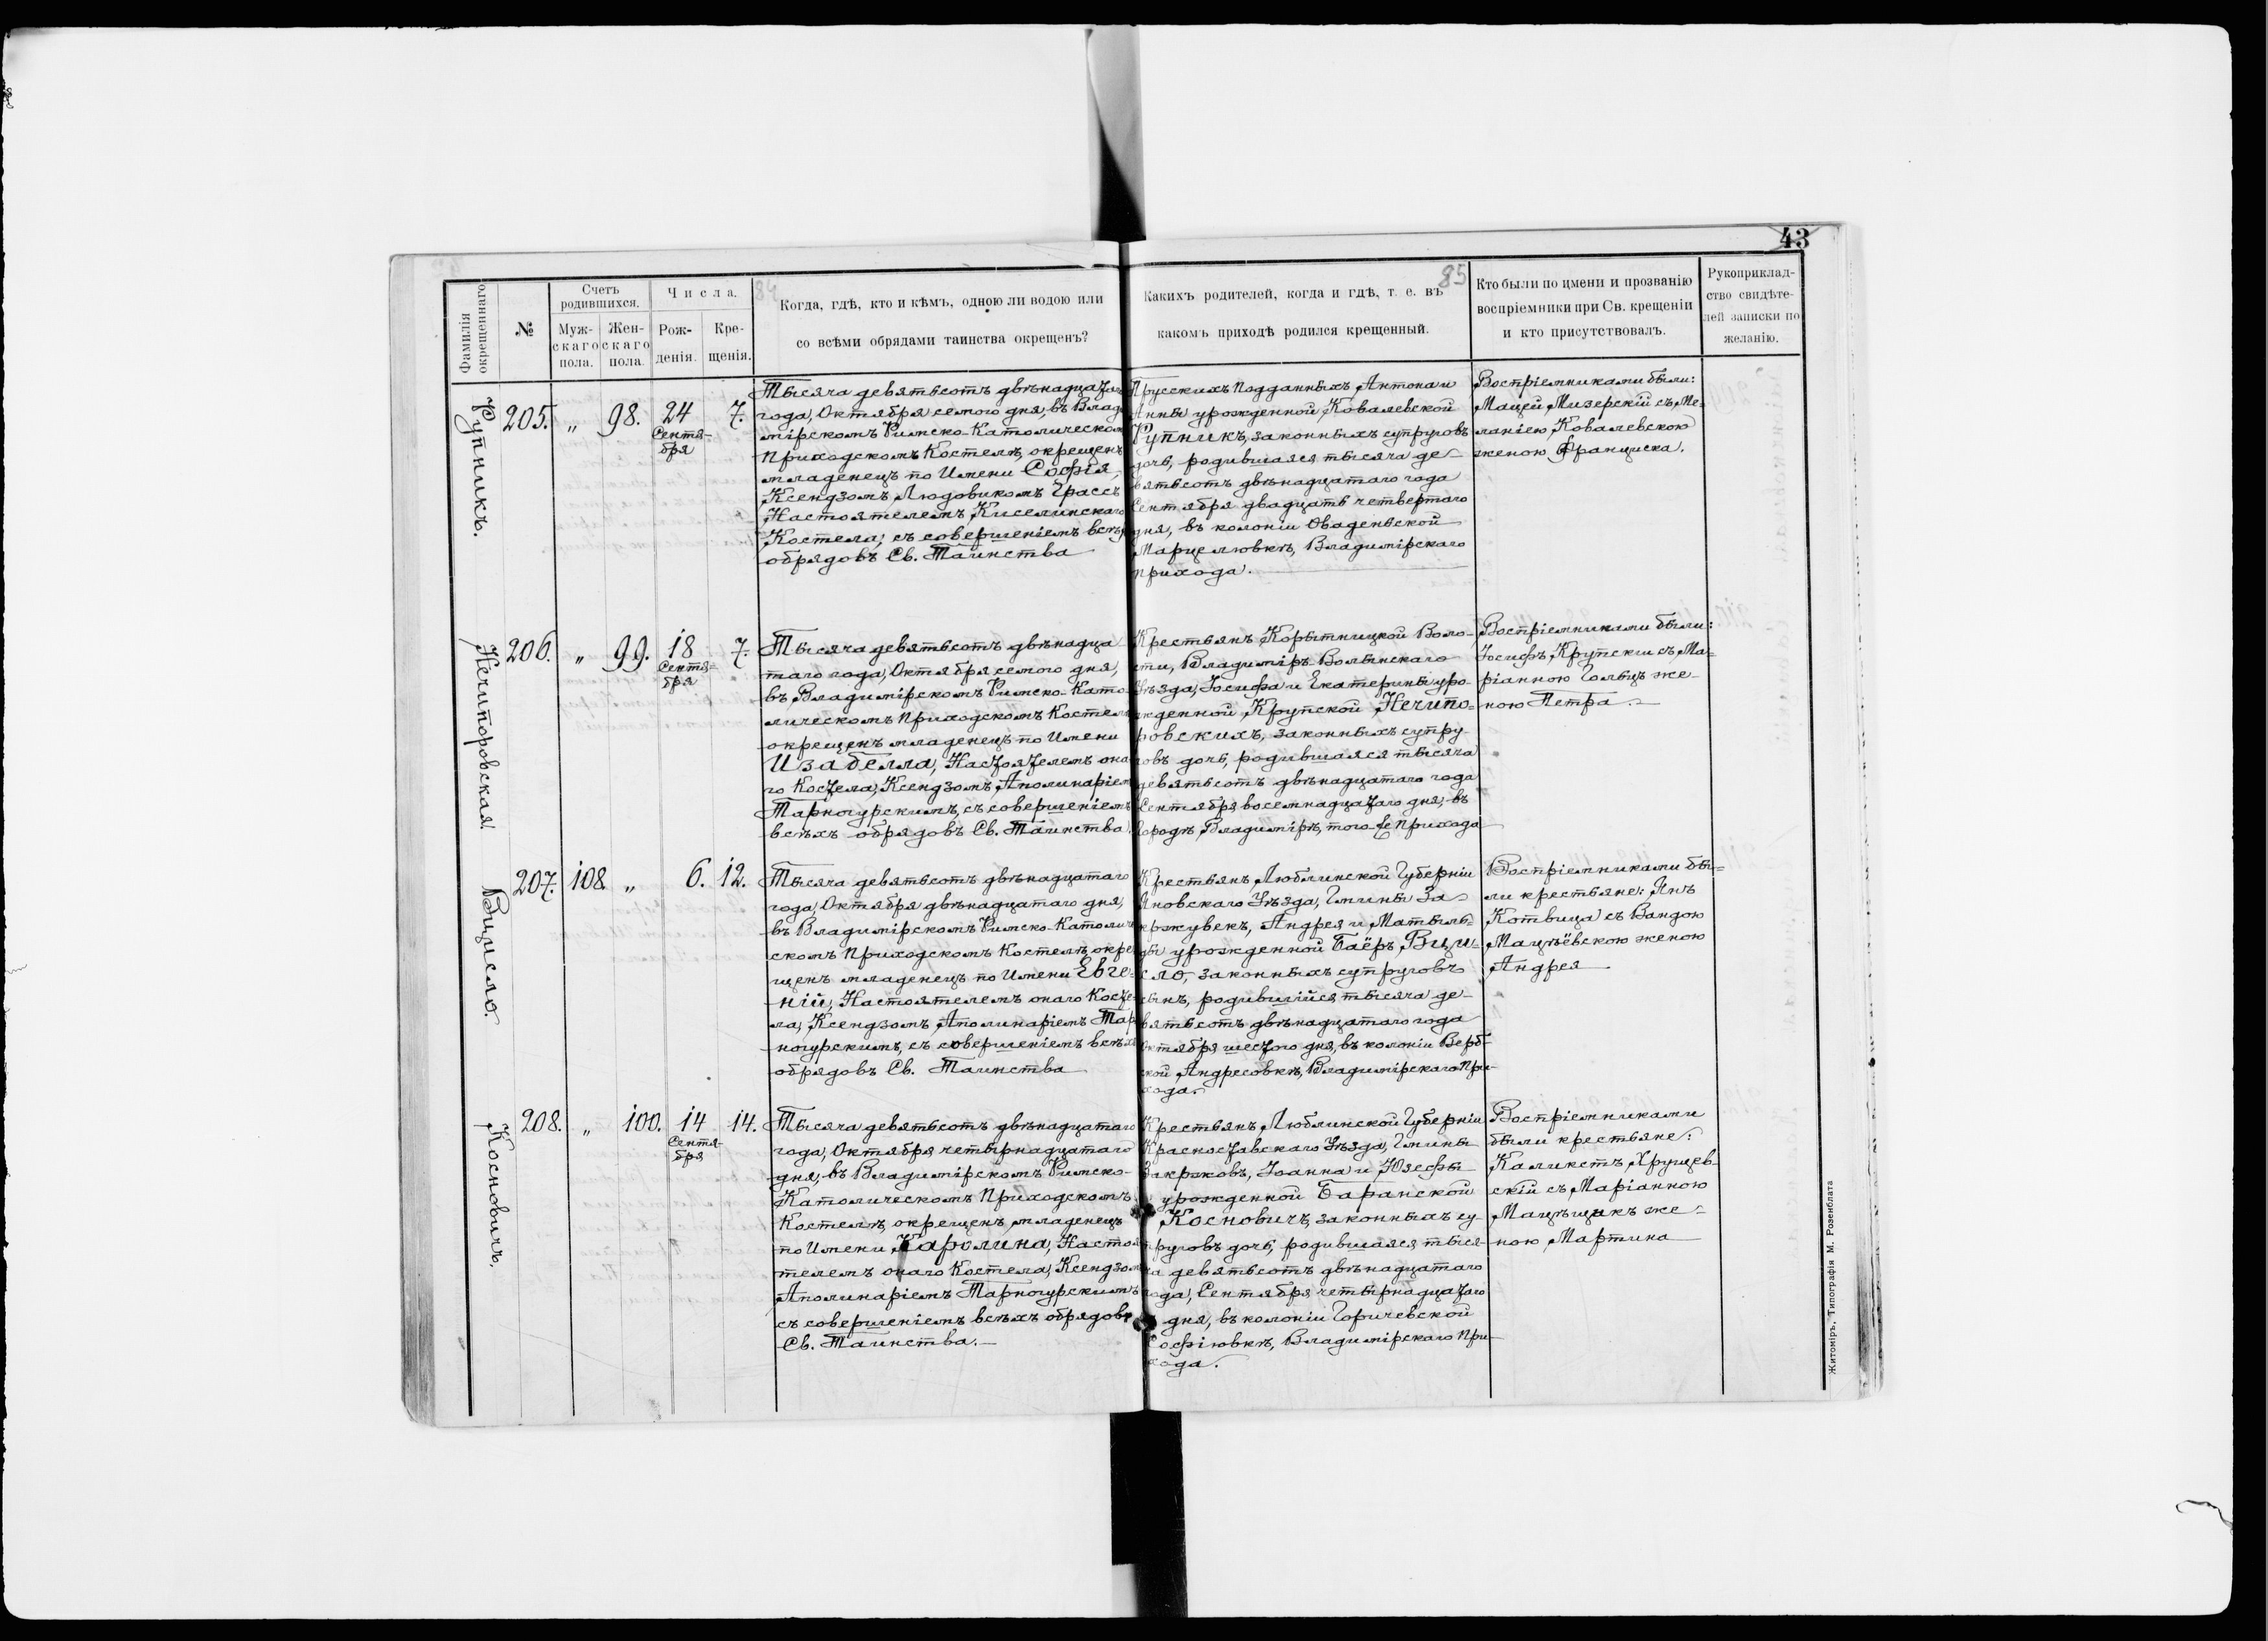 43
84
85
Фамилія окрещеннаго.
№
Счетъ родившихся.
Муж-
скаго
пола.
Жен-
скаго
пола.
Числа.
Рож-
денія.
Кре-
щенія.
Когда, гдѣ, кто и кѣмъ, одною ли водою или
со всѣми обрядами таинства окрещенъ?
Какихъ родителей, когда и гдѣ, т. е. въ
какомъ приходѣ родился крещенный.
Кто были по имени и прозванію
воспріемники при Св. крещеніи
и кто присутствовалъ.
Рукоприклад-
ство свидѣте-
лей записки по
желанію.
Рупникъ.
205. „ 98. 24 Сентя-
бря 7.
Тысяча девятьсотъ двѣнадцатаго
года, Октября семого дня, въ Влади
мірскомъ Римско-Католическомъ
Приходскомъ Костелѣ, окрещенъ
младенецъ по Имени Софія,
Ксендзомъ Людовикомъ Грассъ
Настоятелемъ Киселинскаго
Костела, съ совершеніемъ всѣхъ
обрядовъ Св. Таинства
Прусскихъ подданныхъ Антона и
Анны урожденной Ковалевской
Рупникъ, законныхъ супруговъ
дочь, родившаяся тысяча де-
вятьсотъ двѣнадцатаго года
Сентября двадцать четвертаго
дня, въ колоніи Оваденьской
Марцелювкѣ, Владимірскаго
прихода.
Воспріемниками были:
Мацей Мизерскій съ Ме-
ланіею Ковалевскою
женою Франциска.
Нечипоровская
206. „ 99. 18 Сентя-
бря 7.
Тысяча девятьсотъ двѣнадца
таго года, Октября семого дня,
въ Владимірскомъ Римско-Като-
лическомъ Приходскомъ Костелѣ
окрещенъ младенецъ по Имени
Изабелла, Настоятелемъ она
го Костела, Ксендзомъ Аполинаріемъ
Тарногурскимъ, съ совершеніемъ
всѣхъ обрядовъ Св. Таинства.
Крестьянъ Корытницкой Воло-
сти, Владиміръ-Волынскаго
Уѣзда, Іосифа и Екатерины уро-
жденной Крупской Нечипо-
ровскихъ, законныхъ супру
говъ дочь, родившаяся тысяча
девятьсотъ двѣнадцатаго года
Сентября восемнадцатаго дня, въ
городѣ Владимірѣ, того-же Прихода
Воспріемниками были:
Іосифъ Крупскій съ Ма-
ріанною Гольцъ же-
ною Петра.
Вицисло.
207. 108 „ 6. 12.
Тысяча девятьсотъ двѣнадцатаго
года, Октября двѣнадцатаго дня,
въ Владимірскомъ Римско-Католиче
скомъ Приходскомъ Костелѣ, окре
щенъ младенецъ по Имени Евге-
ній, Настоятелемъ онаго Косте
ла, Ксендзомъ Аполинаріемъ Тар
ногурскимъ, съ совершеніемъ всѣхъ
обрядовъ Св. Таинства
Крестьянъ Люблинской Губерніи
Яновскаго Уѣзда, Гмины За-
кржувекъ, Андрея и Матиль-
ды урожденной Баёръ, Вици-
сло, законныхъ супруговъ
сынъ, родившійся тысяча де-
вятьсотъ двѣнадцатаго года
Октября шестого дня, въ колоніи Верб-
ской Андресовкѣ, Владимірскаго При-
хода.
Воспріемниками бы-
ли крестьяне: Янъ
Котвица съ Вандою
Мацѣёвскою женою
Андрея
Косновичъ.
208. „ 100. 14 Сентя-
бря 14.
Тысяча девятьсотъ двѣнадцатаго
года, Октября четырнадцатаго
дня, въ Владимірскомъ Римско-
Католическомъ Приходскомъ
Костелѣ, окрещенъ младенецъ
по Имени Каролина, Настоя
телемъ онаго Костела, Ксендзомъ
Аполинаріемъ Тарногурскимъ
съ совершеніемъ всѣхъ обрядовъ
Св. Таинства.
Крестьянъ Люблинской Губерніи
Красноставскаго Уѣзда, Гмины
Закржовъ, Іоанна и Юзефы
урожденной Баранской
Косновичъ, законныхъ су-
пруговъ дочь, родившаяся тыся
ча девятьсотъ двѣнадцатаго
года, Сентября четырнадцатаго
дня, въ колоніи Горичевской
Софіювкѣ, Владимірскаго При-
хода.
Воспріемниками
были крестьяне:
Каликстъ Хрущев-
скій съ Маріанною
Мацѣщакъ же-
ною Мартина
Житоміръ, Типографія М. Розенблата